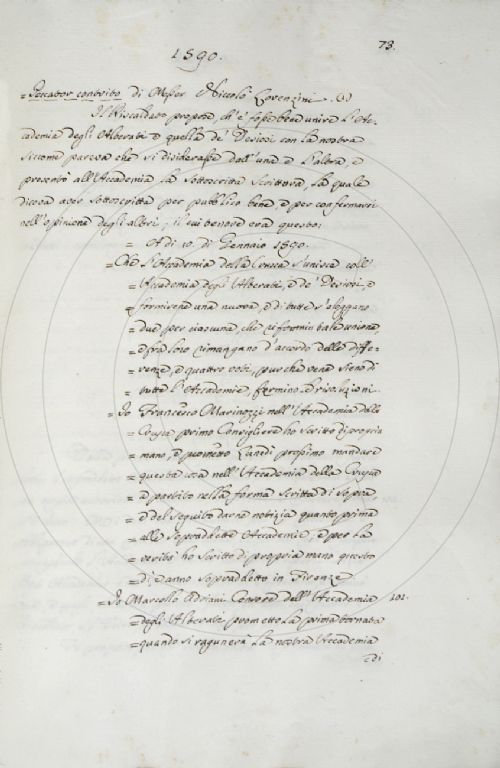 73.
1590.
= Peccator contrito di Messer Niccolò Lorenzini. (1)
Il Riscaldato propose, ch'e' fosse bene unire l'Ac-
cademia degli Alterati e quella de' Desiosi con la nostra
siccome pareva che si desiderasse dall'una e l'altra, e
presentò all'Accademia la sottoscritta scrittura, la quale
diceva aver sottoscritta per pubblico bene, e per confermarsi
nell'opinione degli altri, il cui tenore era questo:
= A dì 10. di Gennaio 1590.
= Che l'Accademia della Crusca s'unisca coll'
= Accademia degli Alterati, e de' Desiosi, e
= formisene una nuova, e di tutte s'eleggano
= due per ciascuna, che si formin tale unione
= e fra loro rimangano d'accordo delle diffe-
= renze, e quattro voti, purchè vene sieno di
= tutte l'Accademie, fermino e risoluzioni.
= Io Francesco Marinozzi nell'Accademia della
= Crusca primo Consigliere ho scritto di propria
= mano, e prometto Lunedì prossimo mandare
= questa cosa nell'Accademia della Crusca
= a partito nella forma scritta di sopra
= e del seguito darne notizia quanto prima
= alle sopraddette Accademie, e per la
= verità ho scritto di propria mano questo
= dì, e anno sopraddetto in Firenze
= Io Marcello Adriani Censore dell'Accademia 101.
= degli Alterati prometto la prima tornata
= quando si ragunerà la nostra Accademia
di